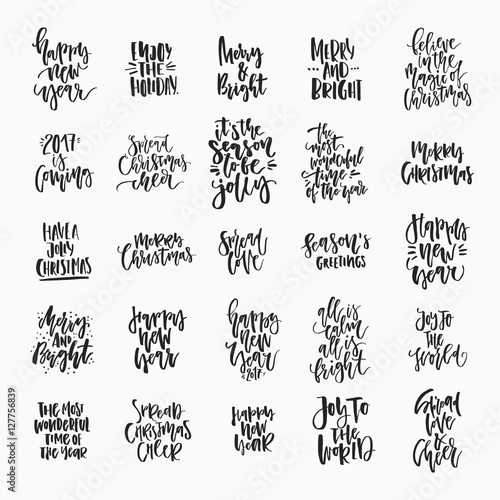 happy
new
year
ENJOY
THE
HOLIDAY
Merry
&
Bright
MERRY
AND
BRIGHT
believe
in the
magic of
Christmas
2017
is
Coming
Spread
Christmas
cheer
it's the
season
to be
jolly
the
most
wonderful
time
of the year
Merry
Christmas
HAVE A
JOLLY
CHRISTMAS
Merry
Christmas
Spread
love
Season's
GREETINGS
Happy
new
year
Merry
AND
Bright
Happy
New
Year
happy
New
Year
2017
all is
calm
all is
bright
Joy to
the
World
THE MOST
WONDERFUL
TIME OF
THE YEAR
SPREAD
CHRISTMAS
CHEER
Happy
new
year
Joy to
the
World
Spread
love
&
Cheer
127756839